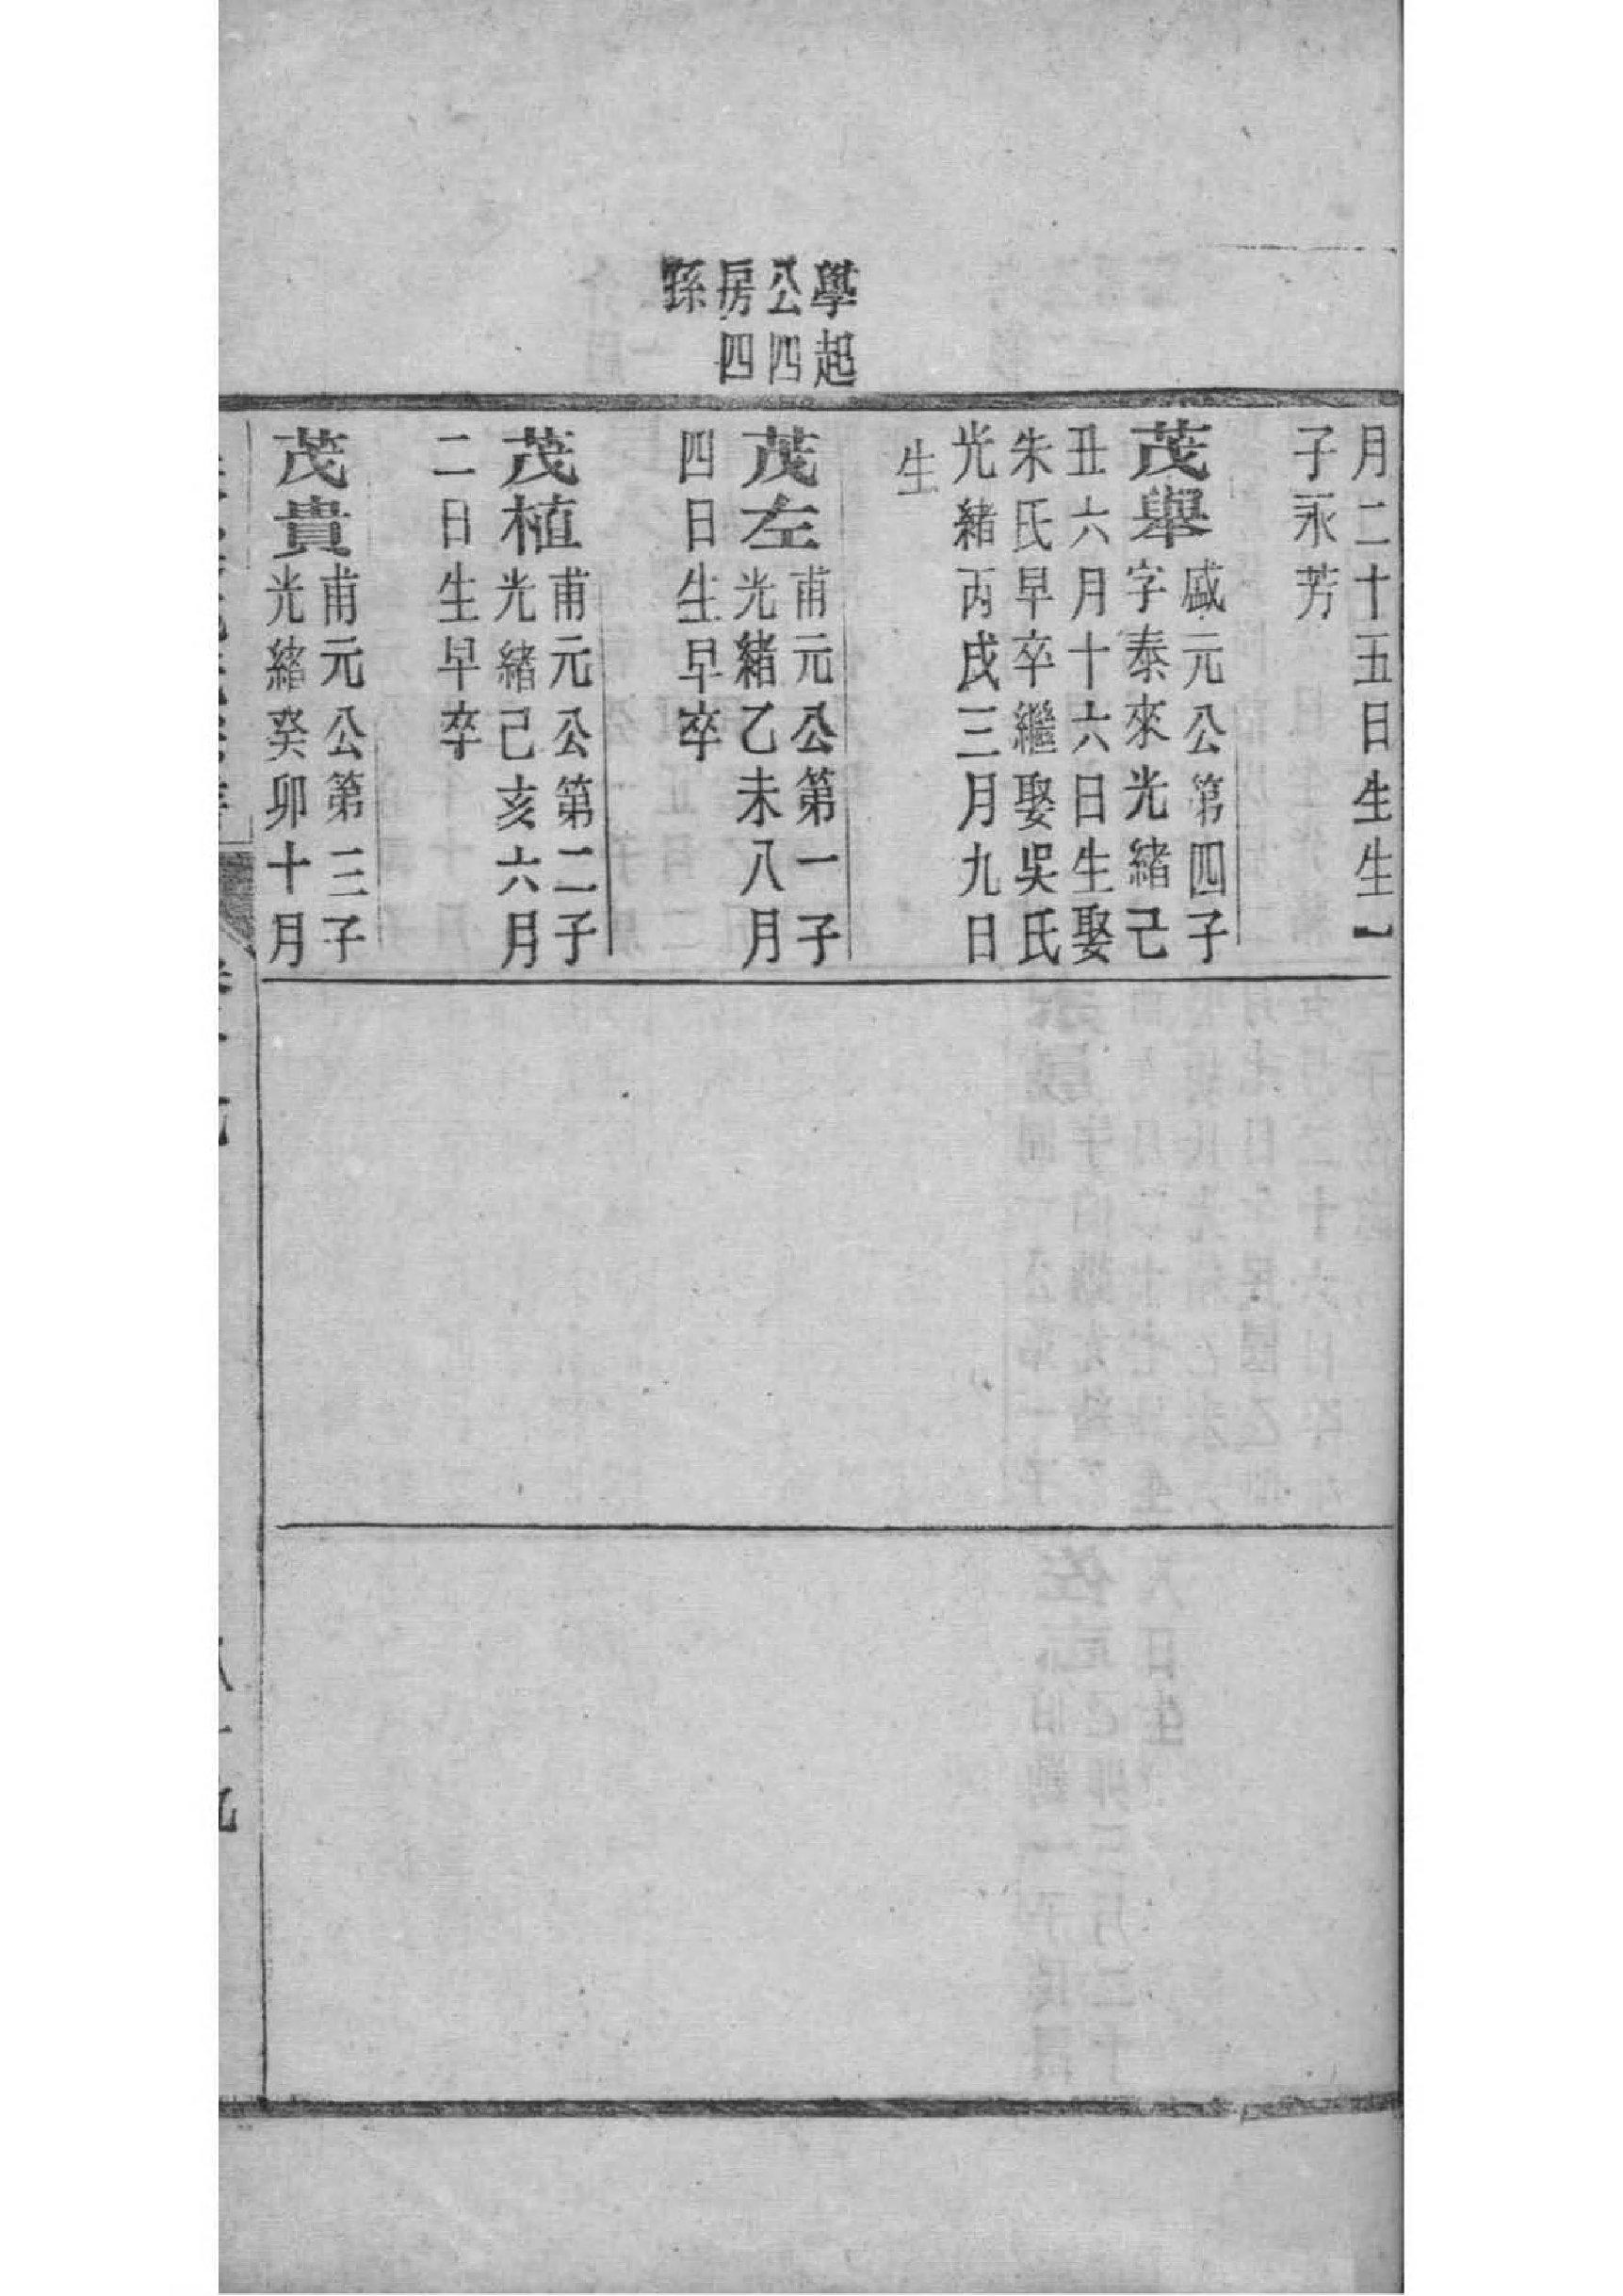 學起
公四
房四
孫
月二十五日生生一
子永芳
茂舉 盛元公第四子
字泰來光緒己
丑六月十六日生娶
朱氏早卒繼娶吳氏
光緒丙戌三月九日
生
茂左 甫元公第一子
光緒乙未八月
四日生早卒
茂植 甫元公第二子
光緒己亥六月
二日生早卒
茂貴 甫元公第三子
光緒癸卯十月